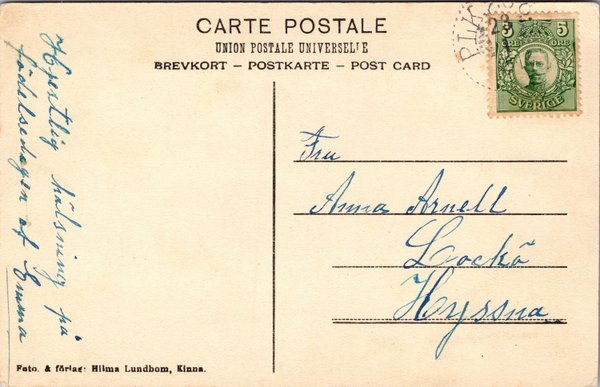 CARTE POSTALE
UNION POSTALE UNIVERSELLE
BREVKORT – POSTKARTE – POST CARD
5 5
ÖRE ÖRE
SVERIGE
Hjertlig hälsning på
födelsedagen af Emma
Fru
Anna Arnell
Lockö
Hyssna
Foto. & förlag: Hilma Lundbom, Kinna.